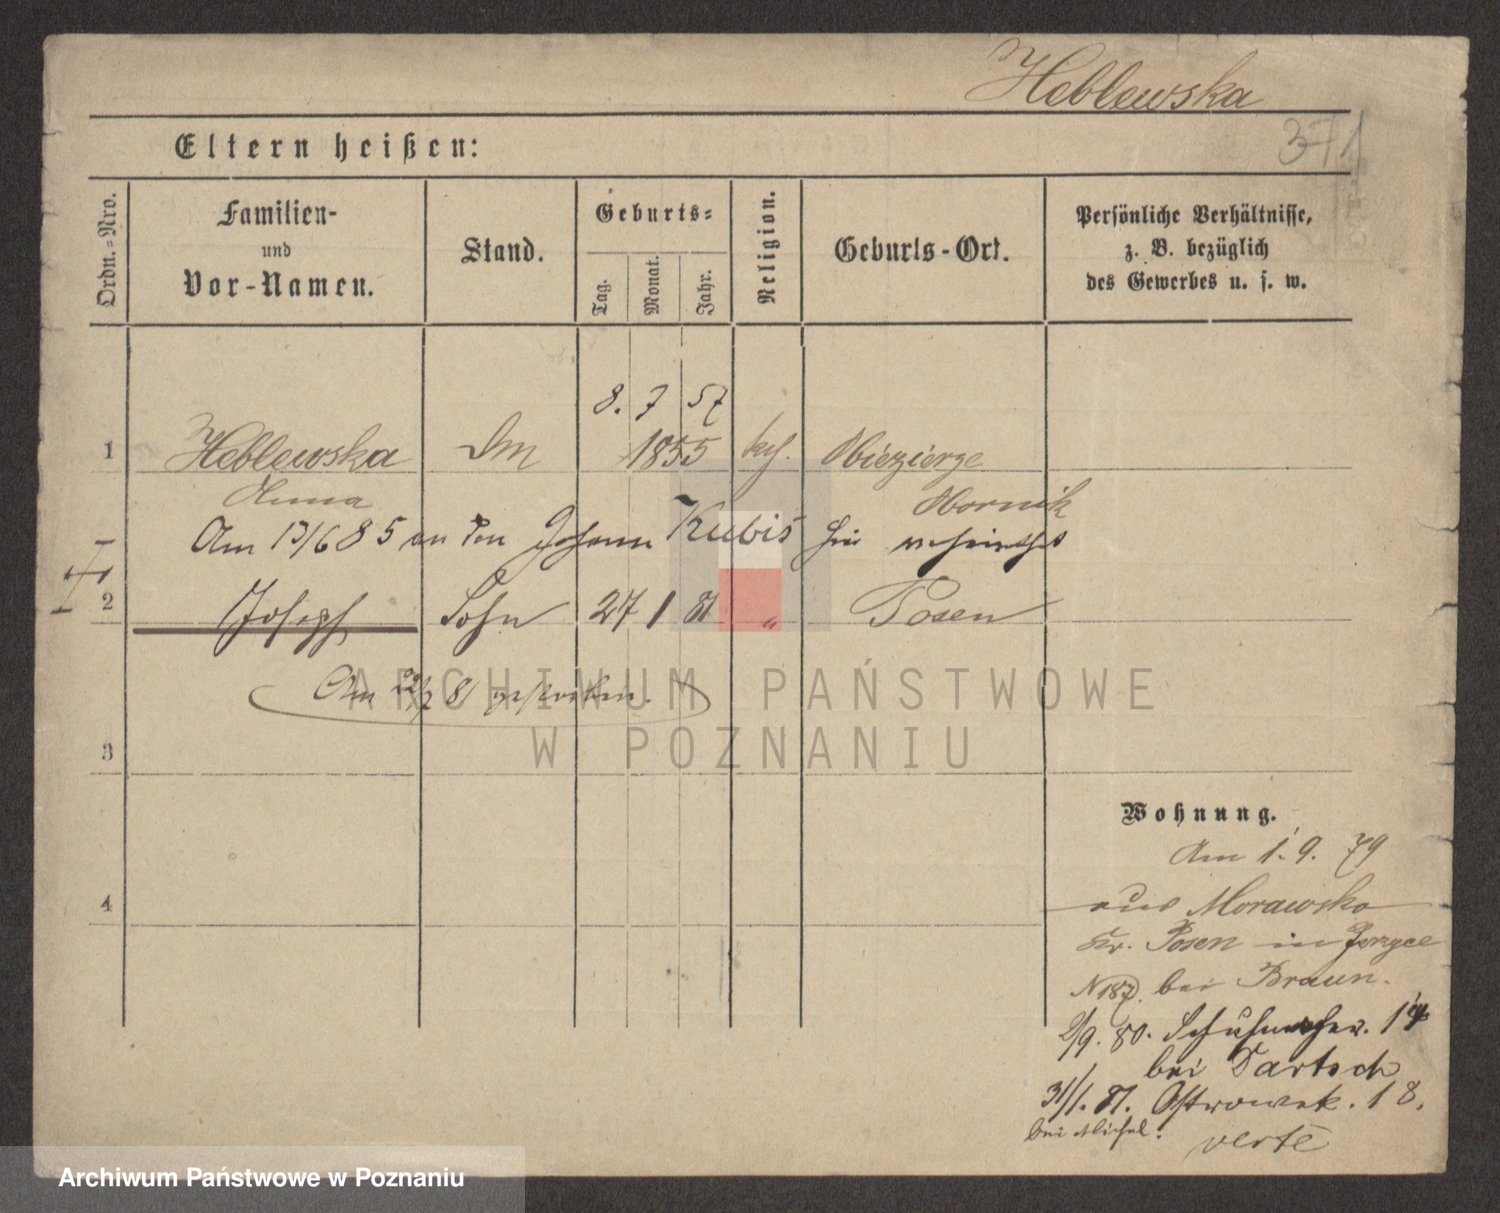 Heblewska
371
Eltern heißen:
Ordn.-Nro.
Familien-
und
Vor-Namen.
Stand.
Geburts-
Tag.
Monat.
Jahr.
Religion.
Geburts-Ort.
Persönliche Verhältnisse,
z. B. bezüglich
des Gewerbes u. s. w.
8. 7 57
1 Heblewska 1855 kth. Obiezierze
Anna Obornik
Am 13/6 85 an den Johann Kubiś hier verheirathet
2 Joseph Sohn 27 1 81 " Posen
Am 22/2 81 gestorben.
ARCHIWUM PAŃSTWOWE
W POZNANIU
3
4
Wohnung.
Am 1. 9. 79
aus Morawsko
Kr. Posen in Jerzyce
N 187. bei Braun.
2/9. 80. Schuhmacher. 14
bei Bartsch
31/1. 81. Ostrowek. 18.
bei Michal.
verte
Archiwum Państwowe w Poznaniu